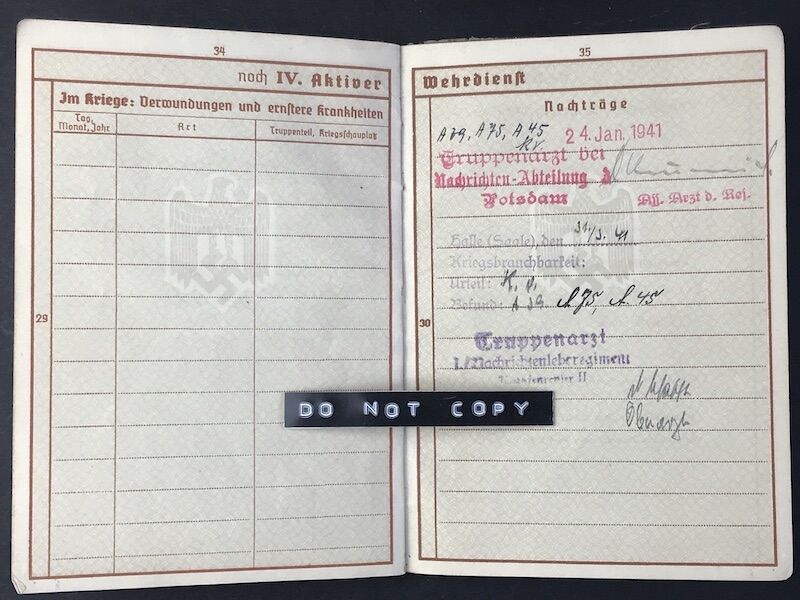 34
noch IV. Aktiver
Im Kriege: Verwundungen und ernstere Krankheiten
Tag, Monat, Jahr
Art
Truppenteil, Kriegsschauplatz
29
35
Wehrdienst
Nachträge
A 39, A 75, A 45
kv.
24. Jan. 1941
Truppenarzt bei
Nachrichten-Abteilung
Potsdam
Ass. Arzt d. Res.
Halle (Saale), den 31/3. 41
Kriegsbrauchbarkeit:
Urteil: K. v.
Befund: A 39. A 75, A. 45
30
Truppenarzt
I./Nachrichtenlehrregiment
II
Oberarzt
DO NOT COPY